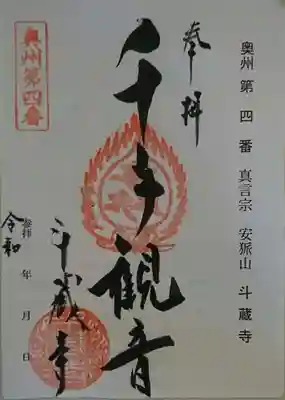 奥州第四番 真言宗 安狐山 斗蔵寺
奉拝
千手観音
斗蔵寺
奥州第四番
参拝
令和 年 月 日